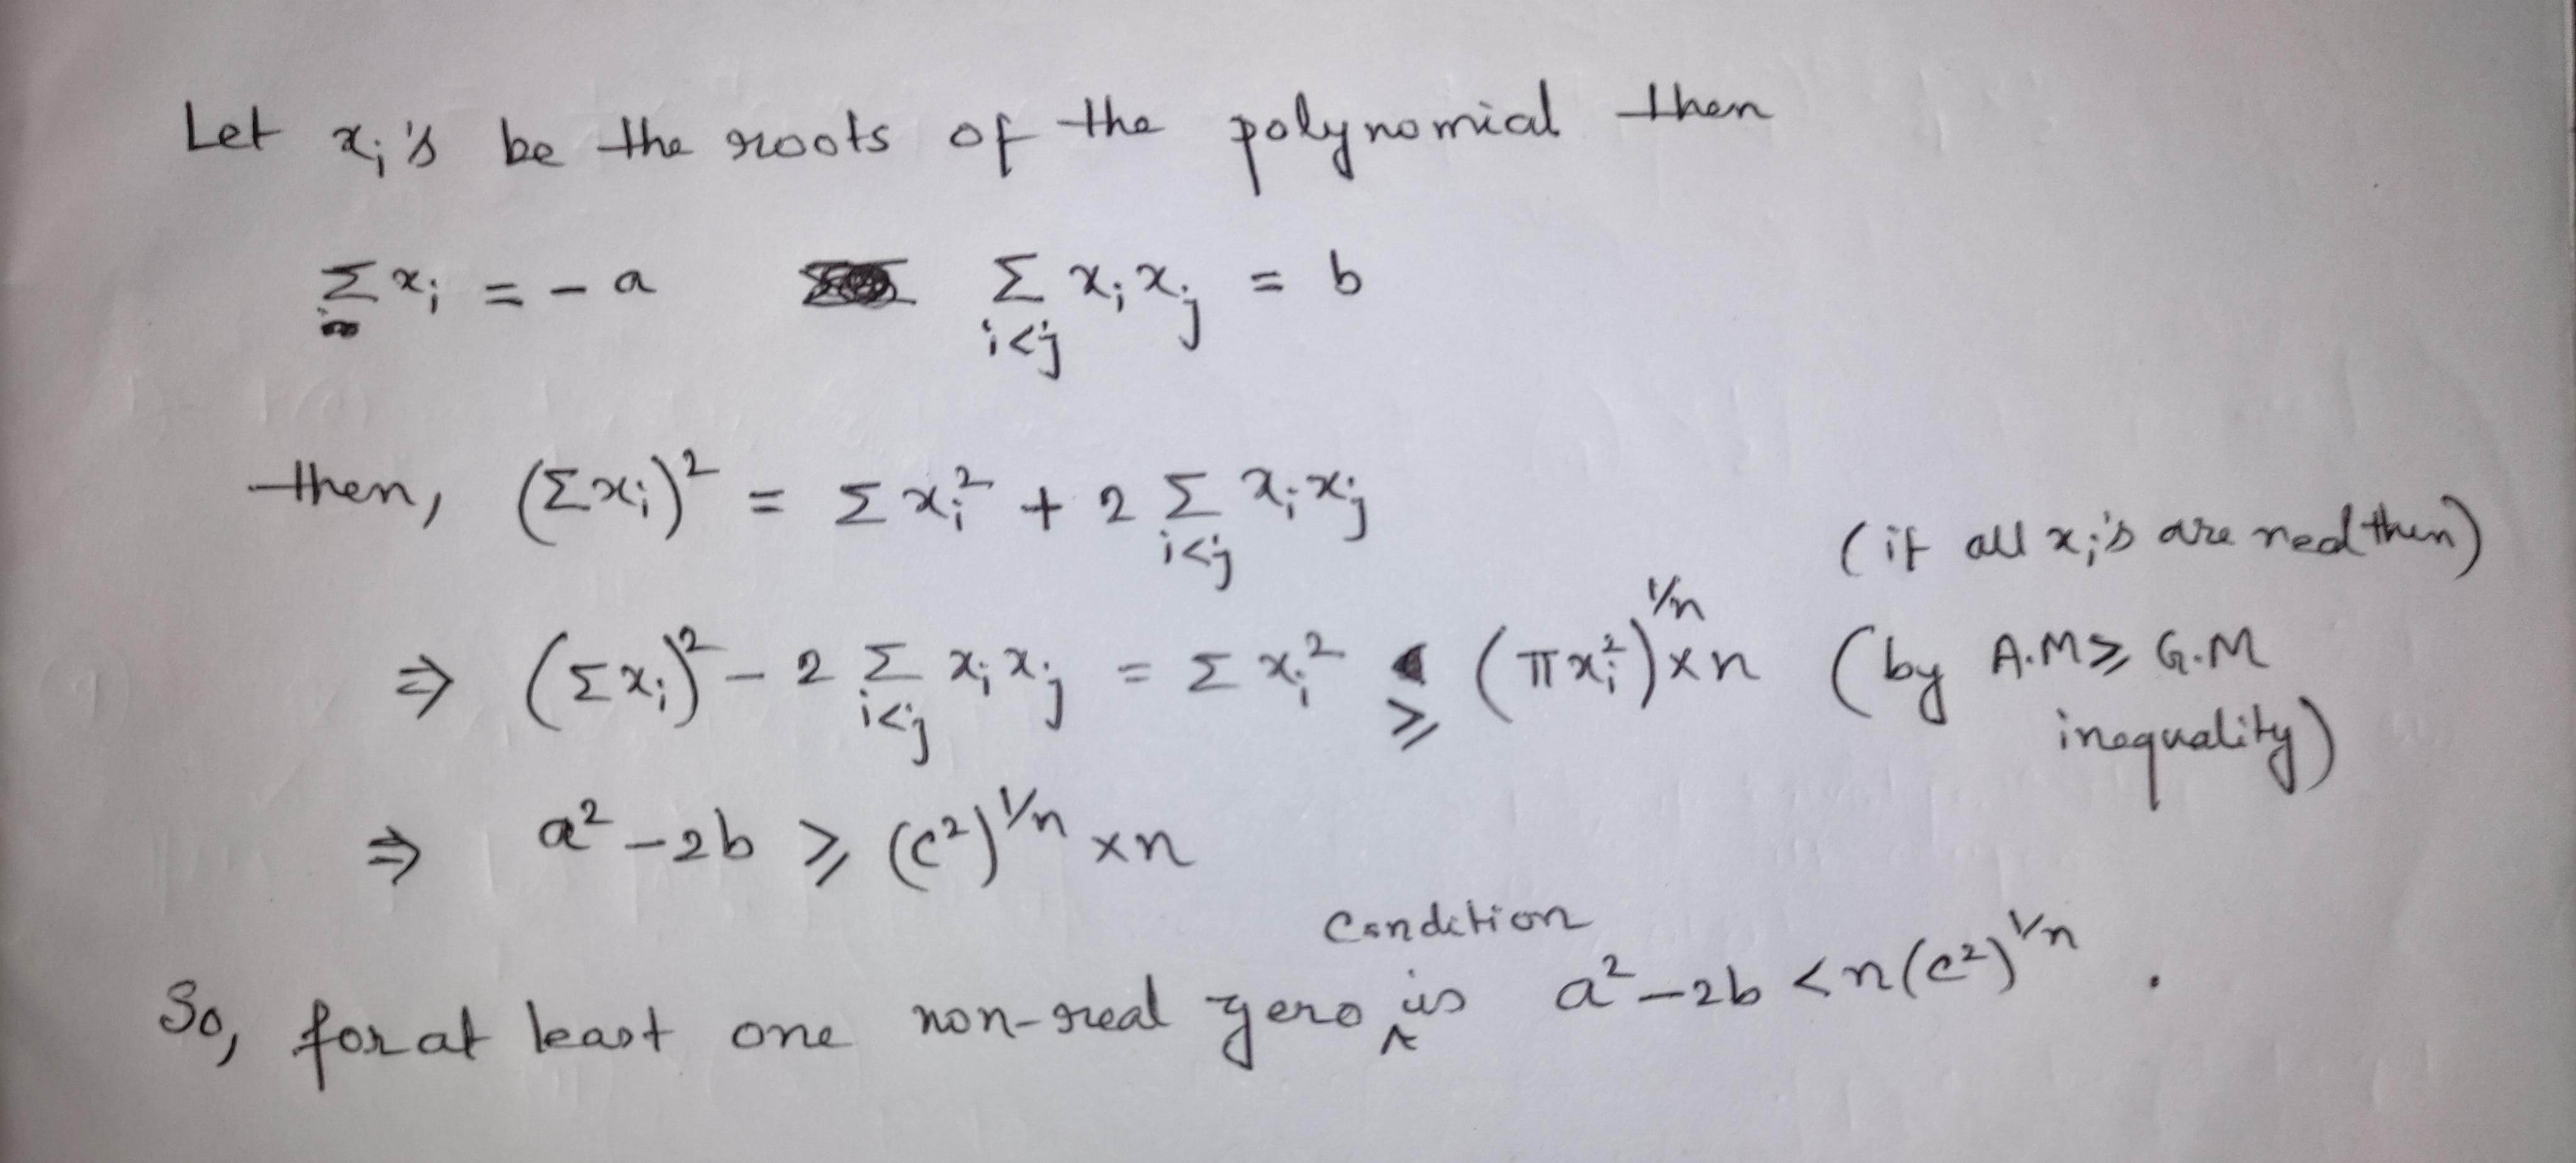 Let xᵢ's be the roots of the polynomial then
Σxᵢ = - a Σ_{i<j} xᵢxⱼ = b
then, (Σxᵢ)² = Σxᵢ² + 2 Σ_{i<j} xᵢxⱼ
(if all xᵢ's are real then)
⇒ (Σxᵢ)² - 2 Σ_{i<j} xᵢxⱼ = Σxᵢ² ≥ (πxᵢ²)^{1/n} × n (by A.M ≥ G.M
inequality)
⇒ a² - 2b ≥ (c²)^{1/n} × n
Condition
So, for at least one non-real zero ^ is a² - 2b < n(c²)^{1/n} .